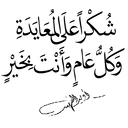 شُكْرًا عَلَى المُعَايَدَة
وَكُلُّ عَامٍ وَأَنْتَ بِخَيْرٍ